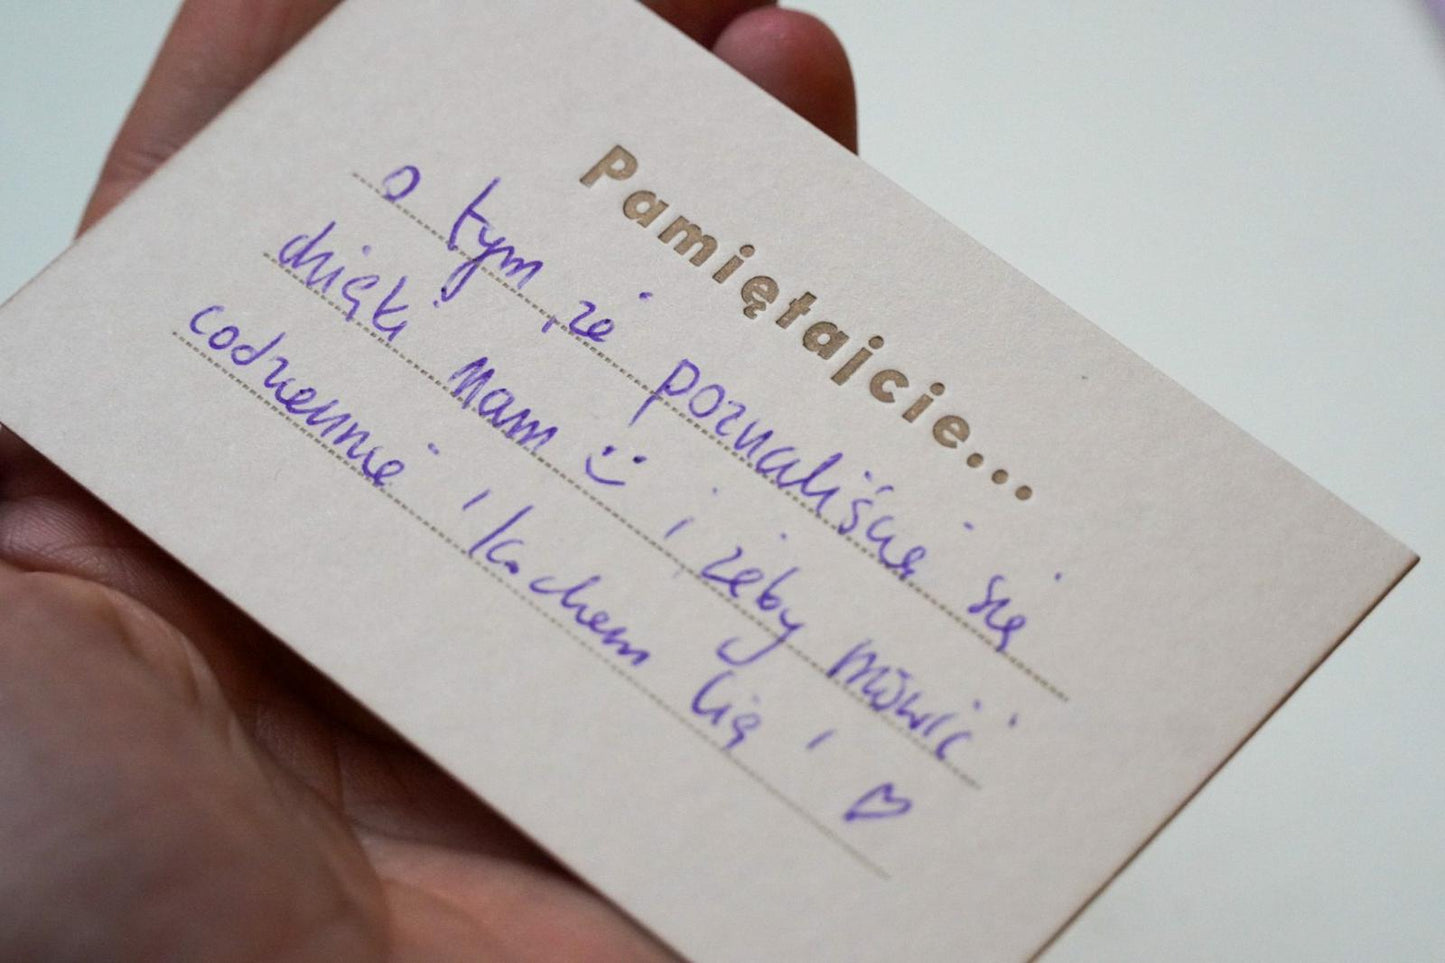 Pamiętajcie...
o tym, że poznaliście się
dzięki Nam i żeby mówić
codziennie 'Kocham Cię'